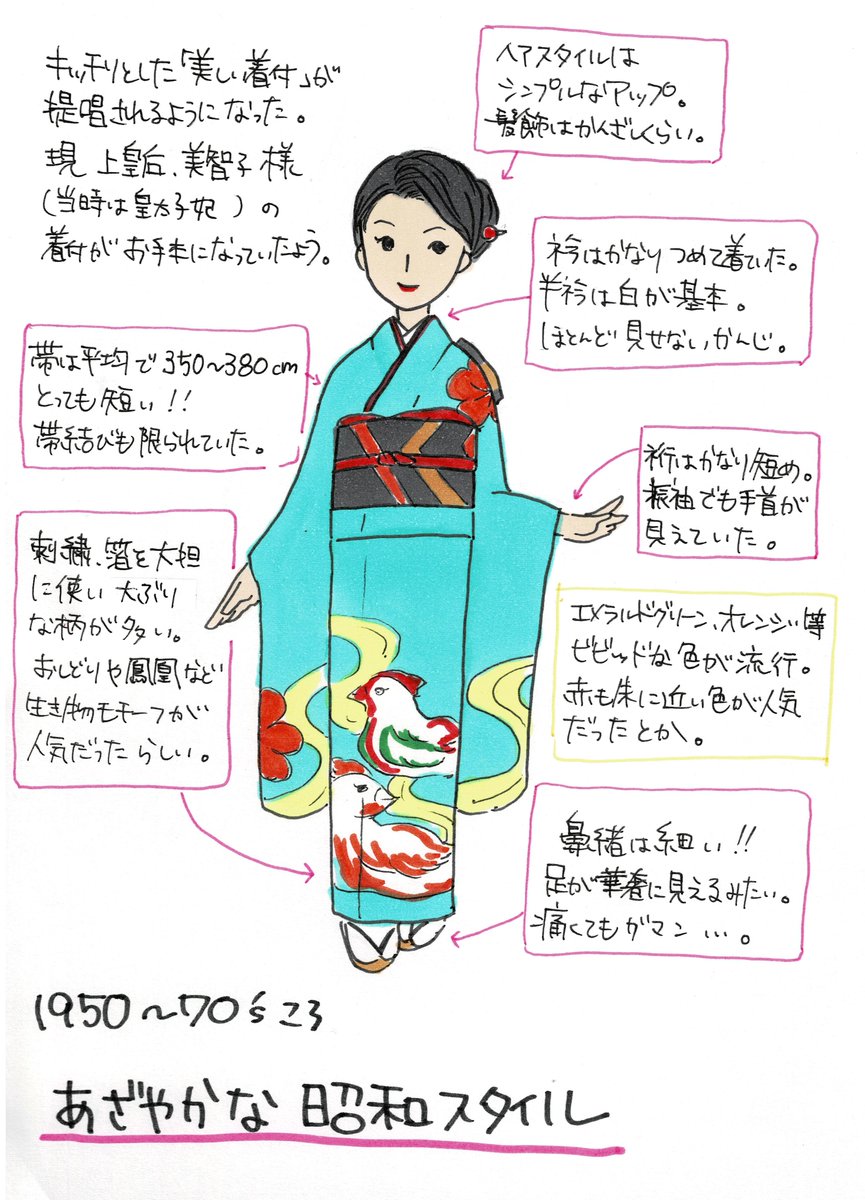 キッチリとした「美しい着付」が
提唱されるようになった。
現 上皇后、美智子様
(当時は皇太子妃 )の
着付がお手本になっていたよう。
ヘアスタイルは
シンプルなアップ。
髪飾はかんざしくらい。
衿はかなりつめて着ていた。
半衿は白が基本。
ほとんど見せないかんじ。
帯は平均で350〜380cm
とっても短い!!
帯結びも限られていた。
裄はかなり短め。
振袖でも手首が
見えていた。
刺繍、箔を大胆
に使い大ぶり
な柄が多い。
おしどりや鳳凰など
生き物モチーフが
人気だったらしい。
エメラルドグリーン、オレンジ等
ビビッドな色が流行。
赤も朱に近い色が人気
だったとか。
鼻緒は細い!!
足が華奢に見えるみたい。
痛くてもガマン…。
1950〜70'sころ
あざやかな昭和スタイル